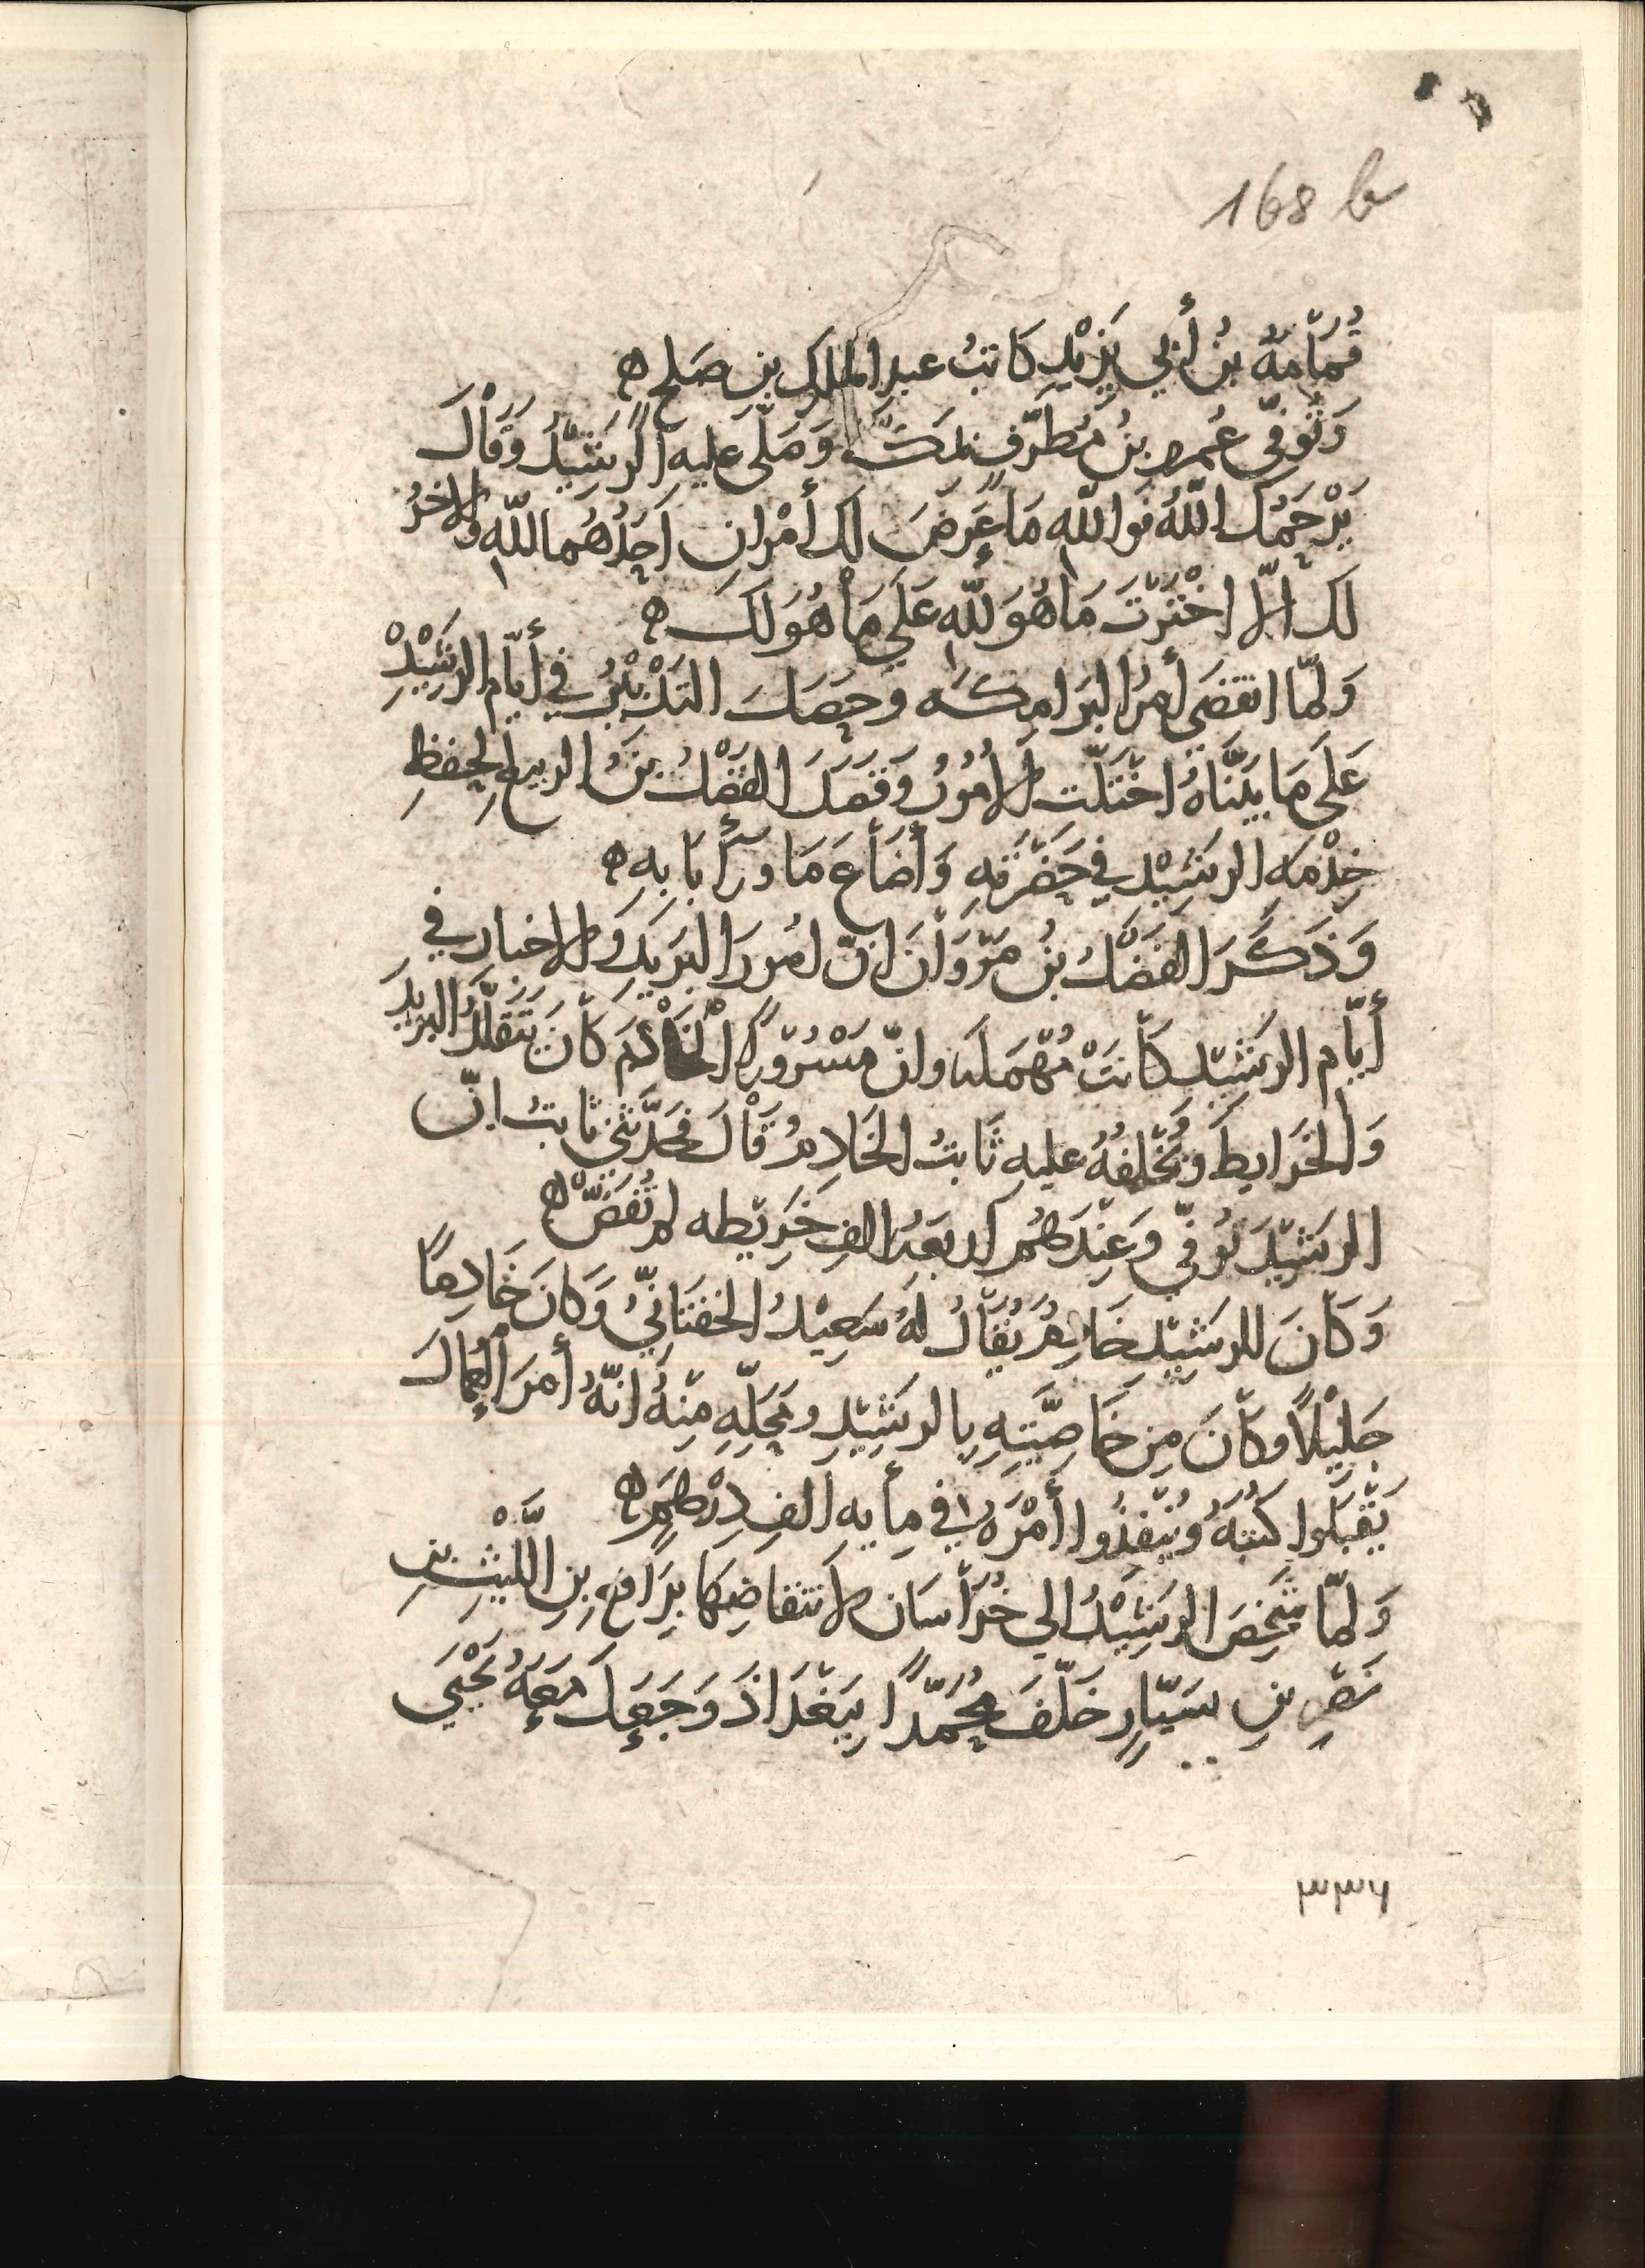 168 b
قُمَامَةُ بنُ أَبي يَزِيْدَ كَاتبُ عبدِ الملكِ بنِ صَلحٍ ه
وَتُوفّي عُمرُ بنُ مُطَرّفٍ بمكّةَ وَصَلّى عليهِ الرَّشِيْدُ وَقَالَ
يَرْحَمُكَ اللهُ فَوَاللهِ مَا عَرَضَ لكَ أَمْرانِ اَحَدُهُما للّهِ وَالاخرُ
لكَ الّا اخْتَرْتَ مَا هُوَ للّهِ عَلَى مَا هُوَ لَكَ ه
وَلمّا انقضَى أَمرُ البَرَامِكَه وَحَصَلَ التَدْبيْرُ في أَيّامِ الرَشِيْدِ
عَلَى مَا بَيّنّاهُ اخْتَلّتِ الأُمُوْرُ وَقَصَدَ الفَضْلُ بنُ الربيعِ لِحِفظِ
خِدْمَهِ الرَشِيْدِ في حَضْرَتِهِ وَأَضَاعَ مَا وَرَآ بَابِهِ ه
وَذَكَرَ الفَضْلُ بنُ مَرْوَانَ انّ امُورَ البَرِيدِ وَالاخبارِ في
أَيّامِ الرَشِيْدِ كَانَتْ مُهْمَلَه وانّ مَسْرُوْرًا الخَادِمَ كَانَ يَتَقَلّدُ البَرِيدَ
وَالخَرَايطَ وَيَخْلِفُهُ عليهِ ثَابتُ الخَادِمُ قَالَ فَحَدَّثَنِي ثابتُ انّ
الرَشِيْدَ تُوفّي وَعِنْدَهُم اَربَعَهُ الفِ خَرِيْطه لم تُفَضّ ه
وَكَانَ للرَشِيْدِ خَادِمُ يُقَالُ لَهُ سَعِيْدُ الخفتَانيُّ وَكَانَ خَادِمًا
جَلِيْلًا وَكَانَ مِن خَاصِيَّتِهِ بِالرَشِيْدِ وَمَحَلّهِ مِنهُ انّهُ أَمَرَ العُمالَ
يَقْبَلوا كُتبَهُ وَيُنْفِذُوا أَمْرَهُ في مِأَيهِ الفِ دِرْهَمٍ ه
وَلمّا شَخَصَ الرَشِيْدُ الى خُرَاسَانَ لانتفاضِهَا بِرَافعِ بنِ اللّيْثِ بنِ
نَصْرِ بنِ سَيّارٍ خَلّفَ مُحَمّدًا بِبَغْدَاذَ وَجَعَلَ مَعَهُ يَحْيَى
٣٣٦